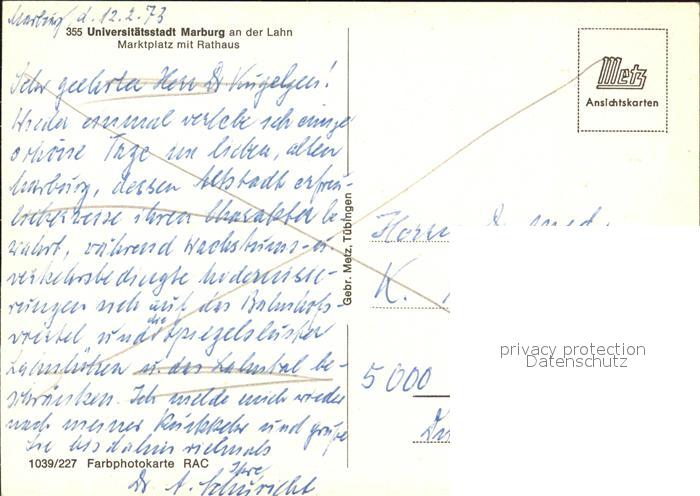 Marburg d. 12.2.73
355 Universitätsstadt Marburg an der Lahn
Marktplatz mit Rathaus
Sehr geehrter Herr Dr Kügelgen!
Wieder einmal verlebe ich einige
schöne Tage im lieben, alten
Marburg, dessen Altstadt erfreu-
licherweise ihren Charakter be-
wahrt, während Wachstums- u.
verkehrsbedingte Modernisie-
rungen sich auf das Bahnhofs-
viertel und die Spiegelsluster
Lahnhöhen u. das Lahntal be-
schränken. Ich melde mich wieder
nach meiner Rückkehr und grüße
Sie bis dahin vielmals
Ihre
Dr. A. Schuricht
1039/227 Farbphotokarte RAC
Gebr. Metz, Tübingen
Metz
Ansichtskarten
Herrn
K.
5000
privacy protection
Datenschutz